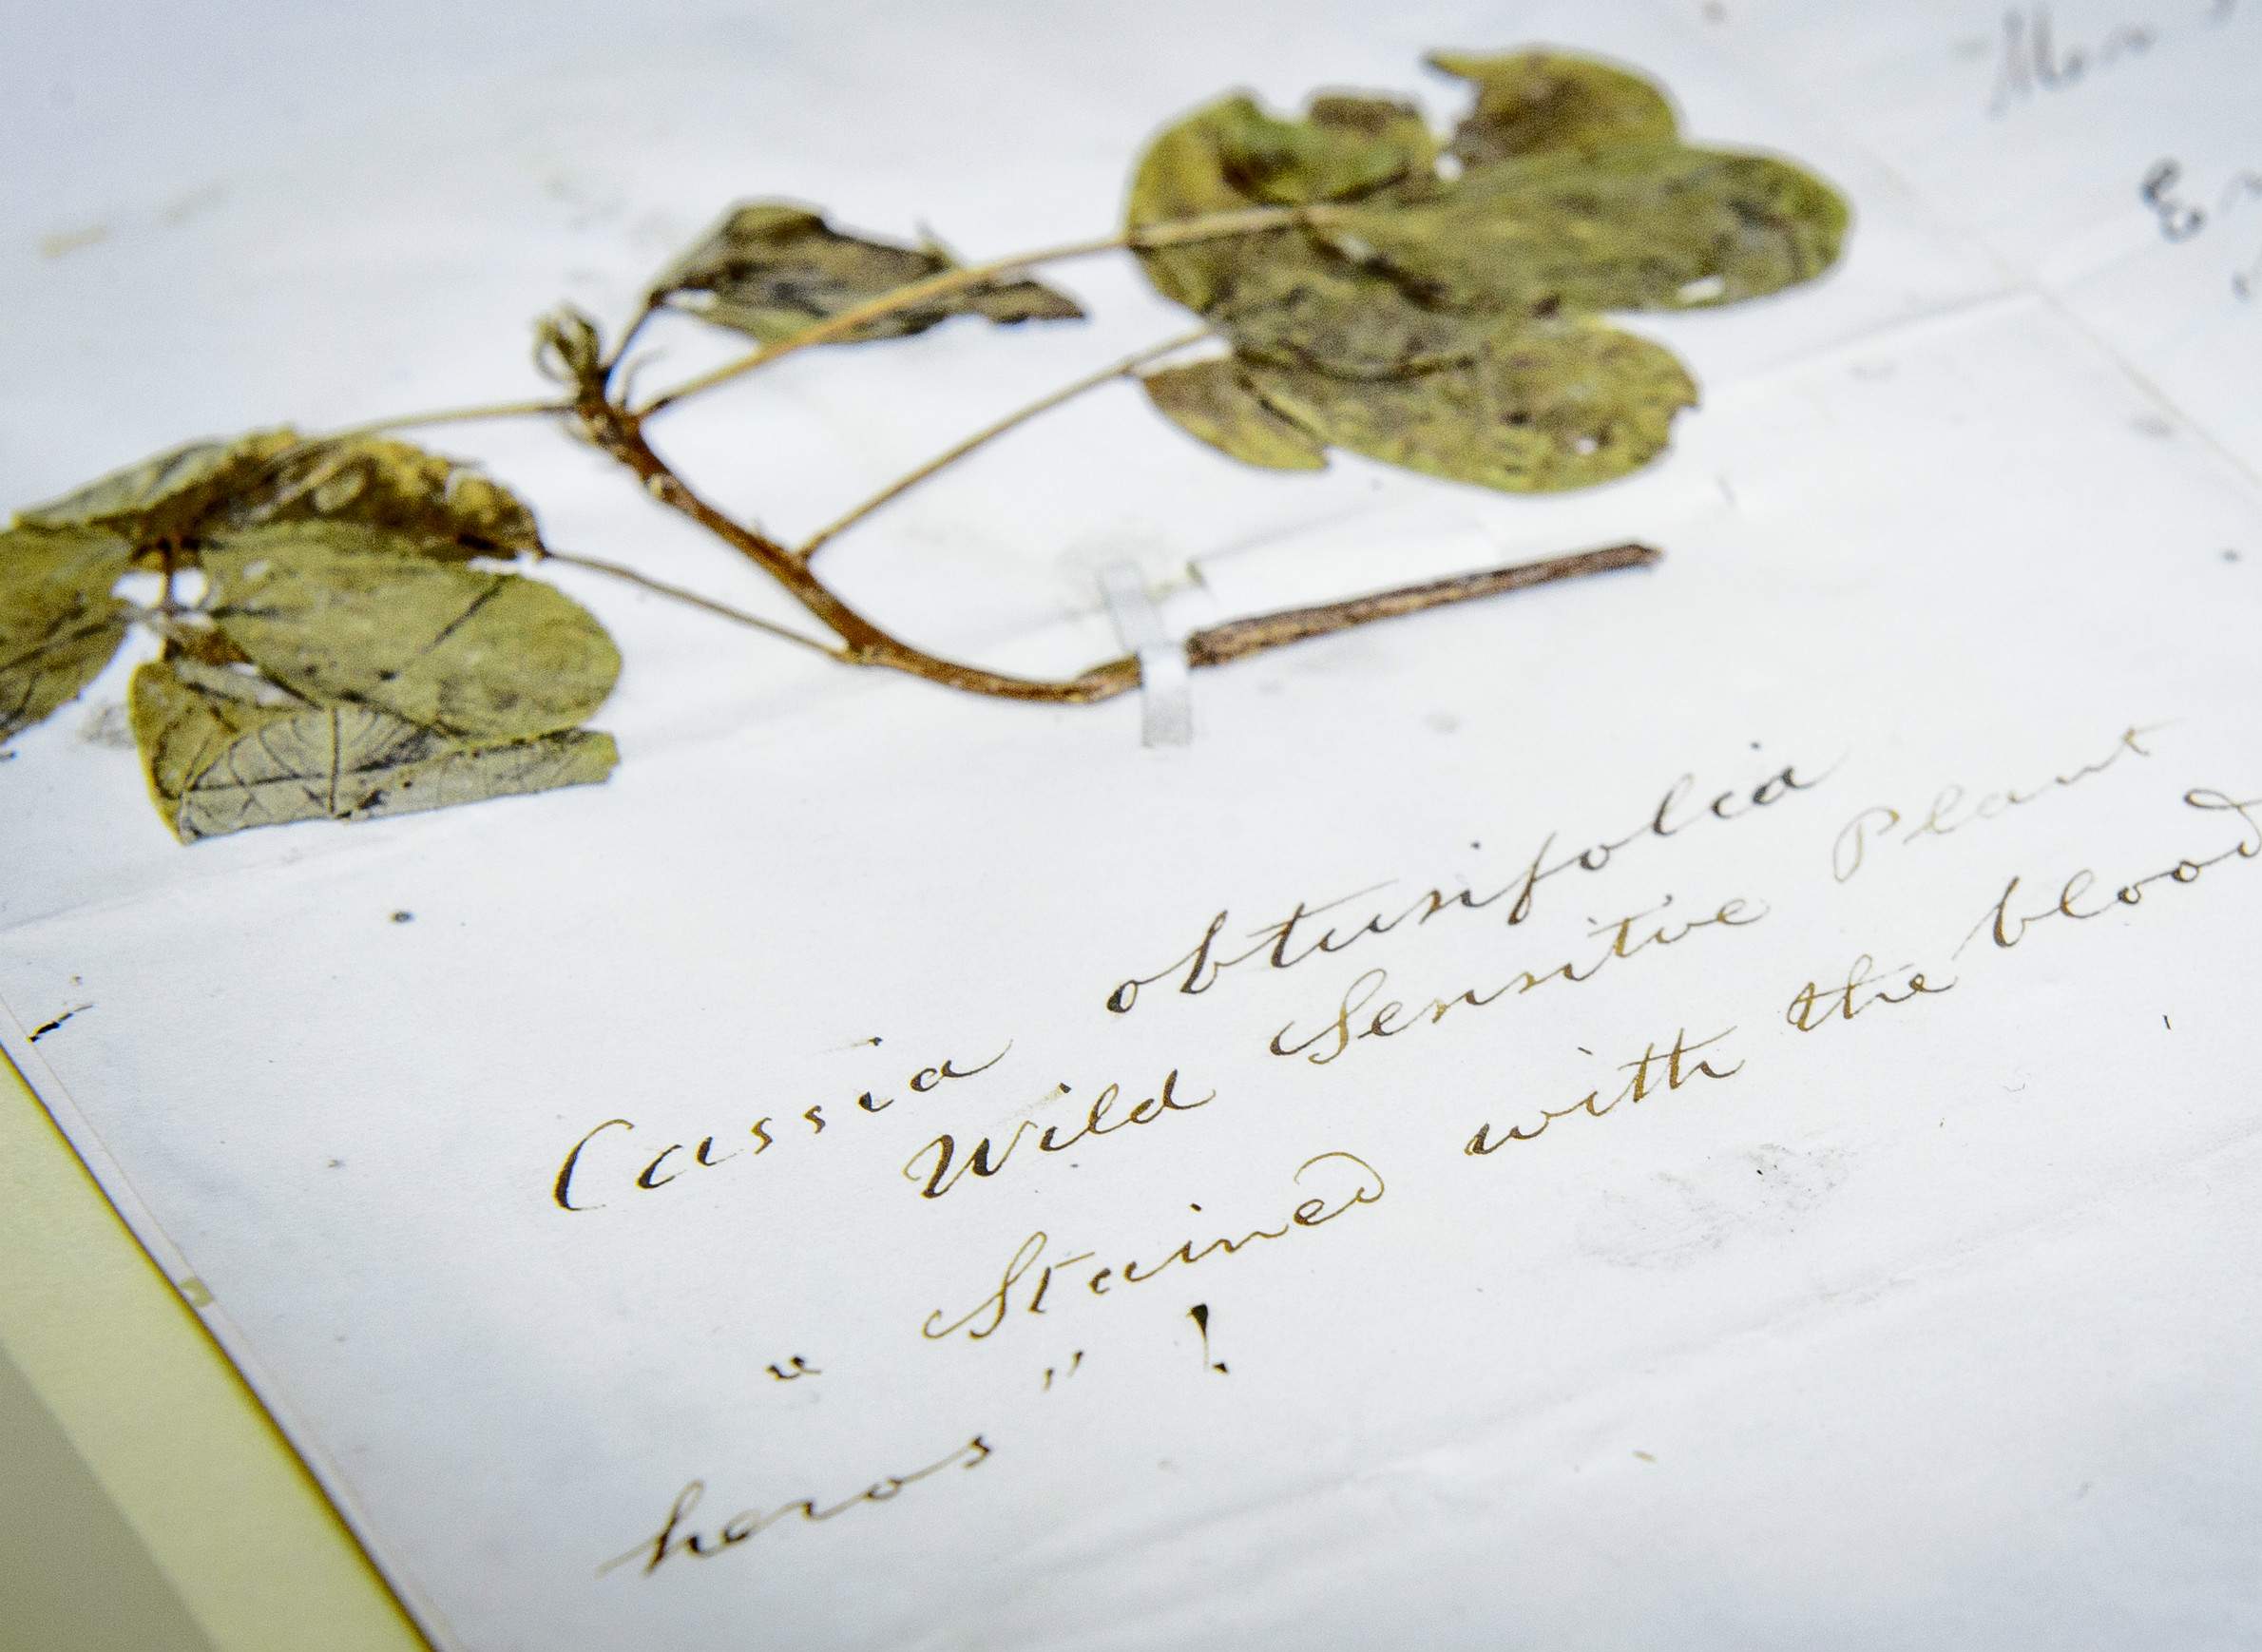 Cassia obtusifolia
Wild Sensitve Plant
" Stained with the blood
heros " !